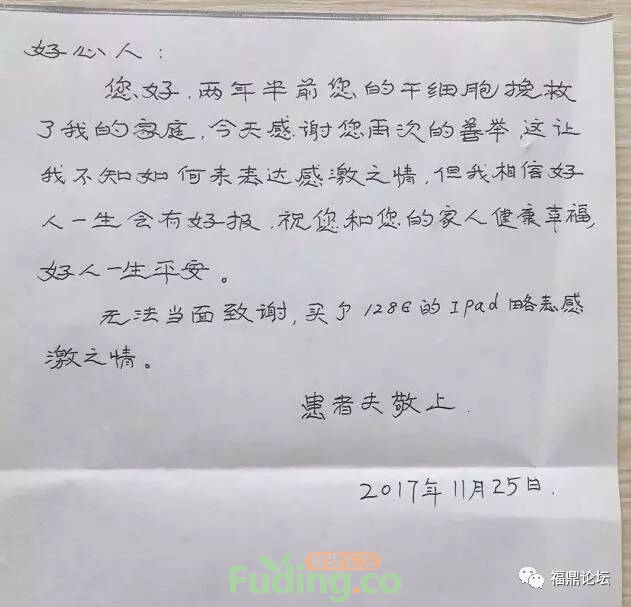 好心人：
您好，两年半前您的干细胞挽救
了我的家庭，今天感谢您再次的善举，这让
我不知如何来表达感激之情，但我相信好
人一生会有好报，祝您和您的家人健康幸福，
好人一生平安。
无法当面致谢，买了128G的Ipad略表感
激之情。
患者夫敬上.
2017年11月25日.
Fuding.co
福鼎论坛